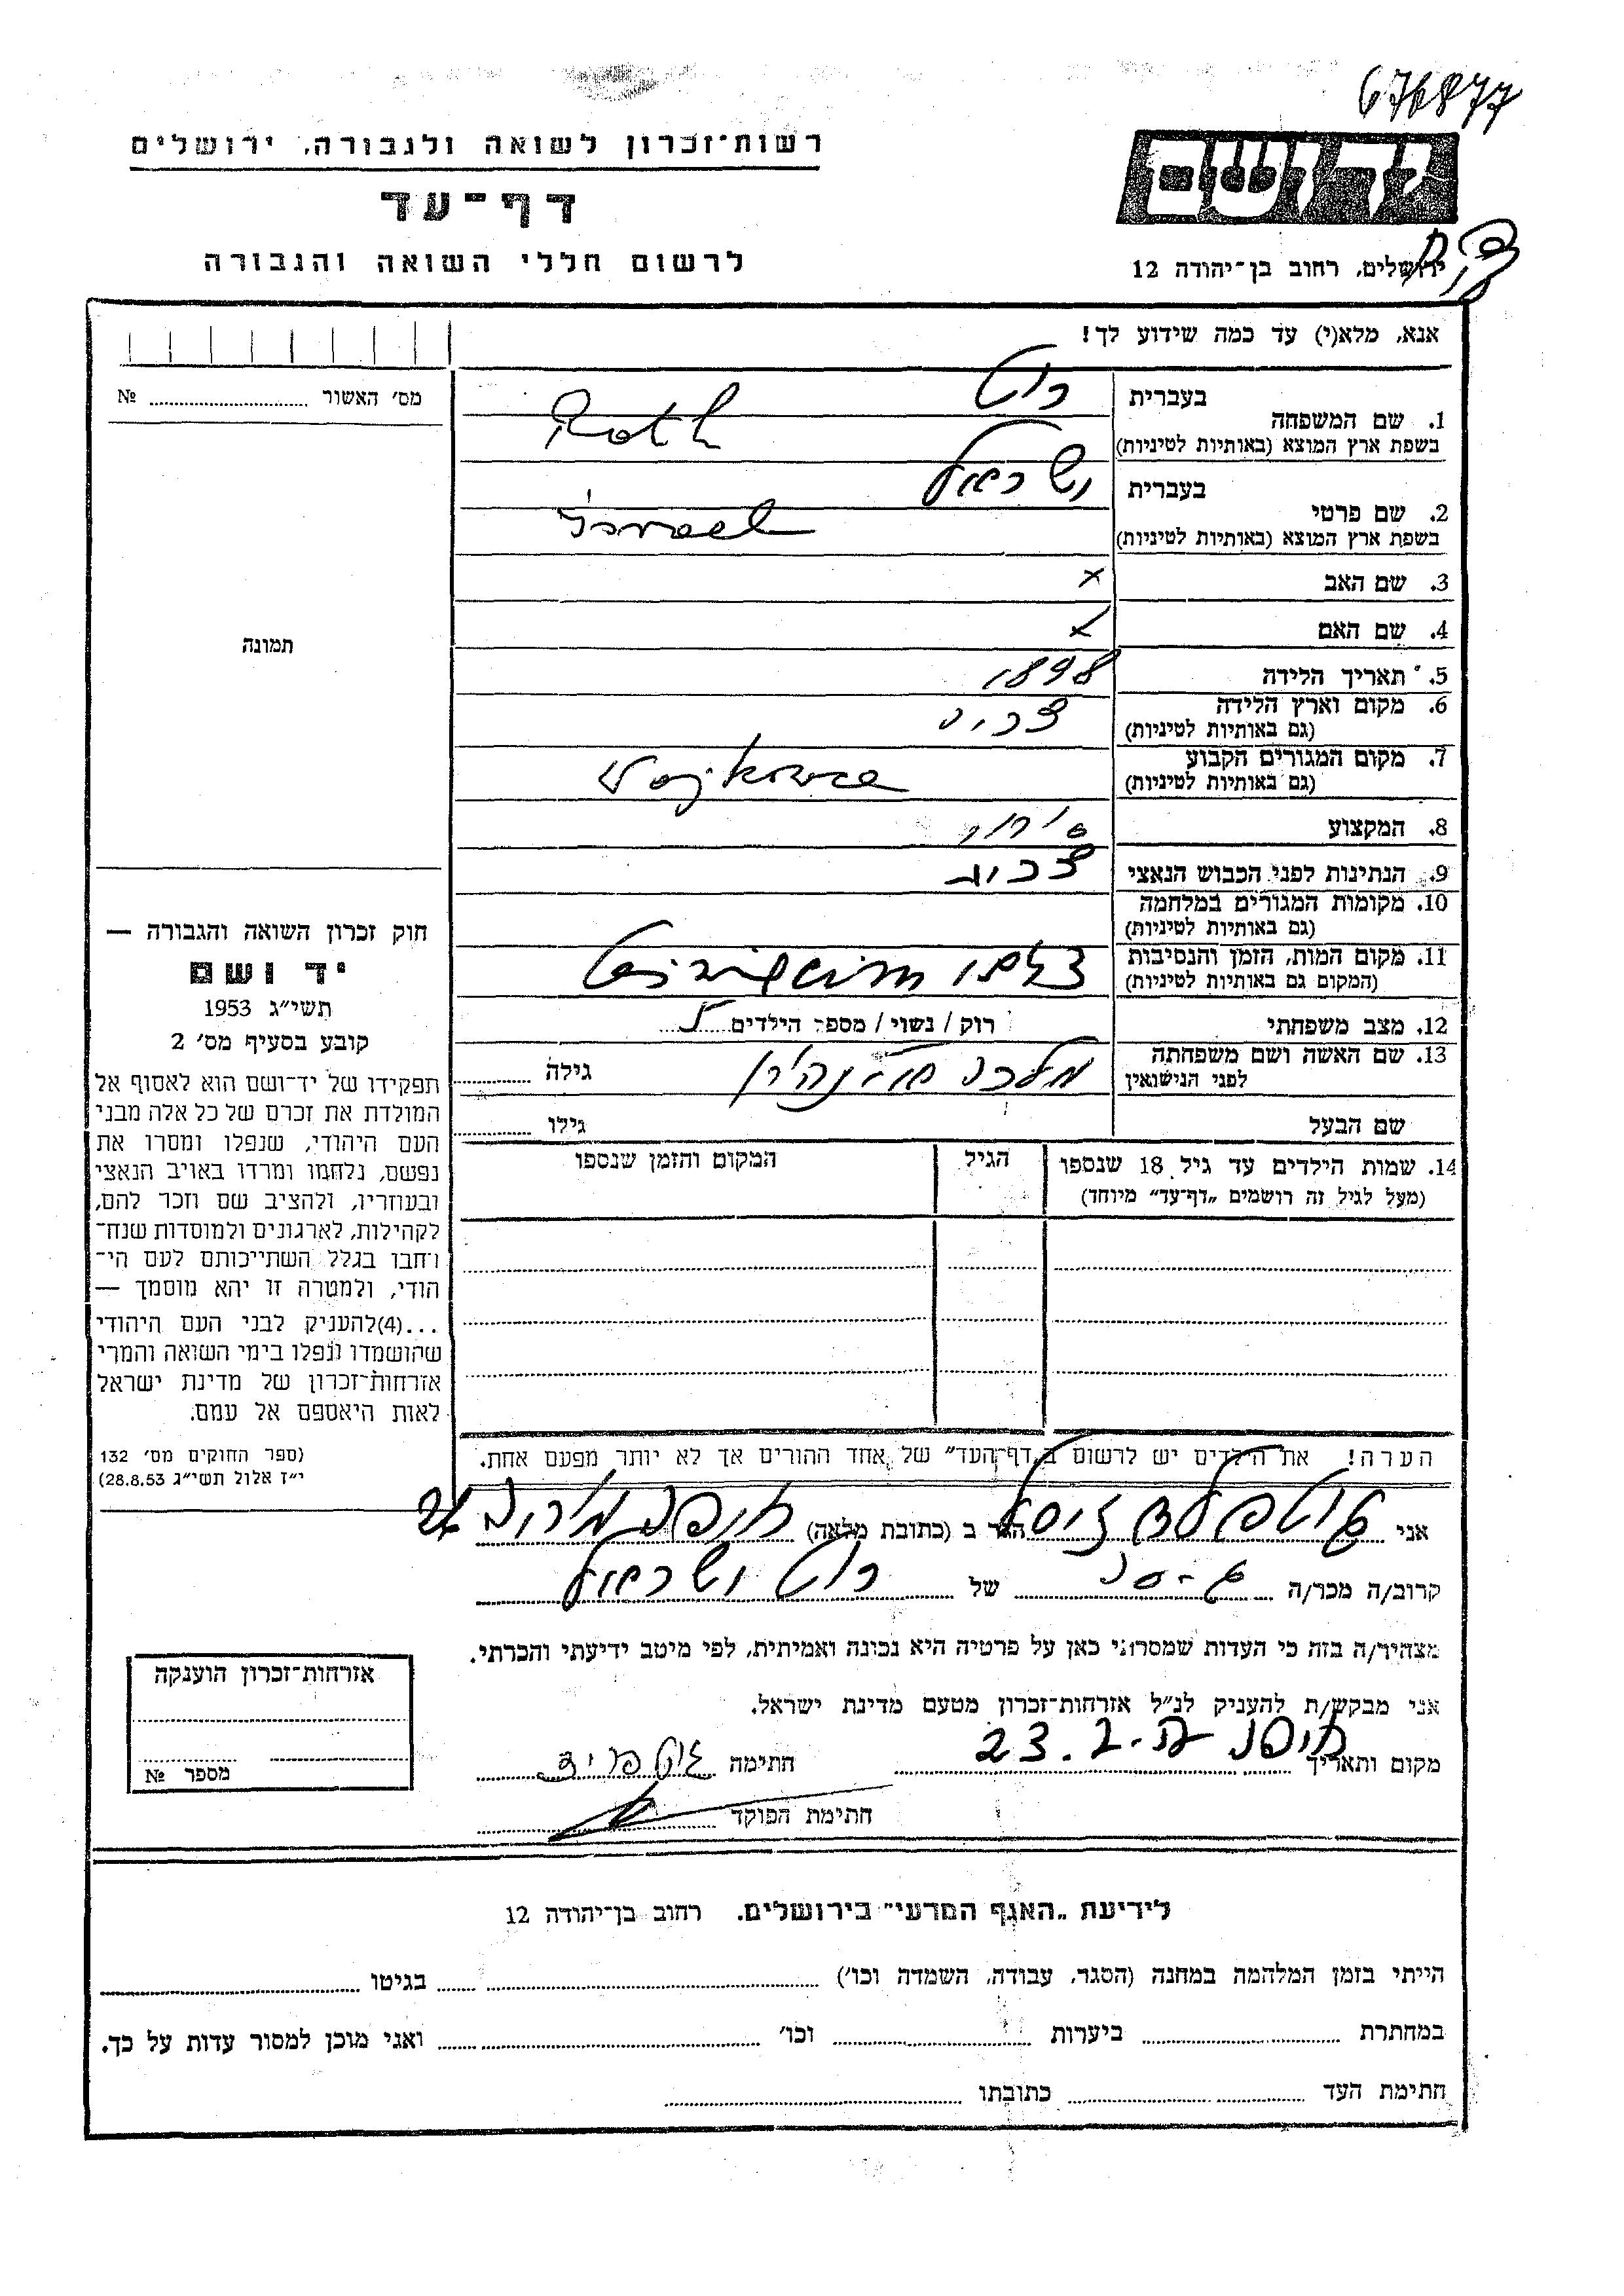 676877
רשות־זכרון לשואה ולגבורה, ירושלים
דף־עד
לרשום חללי השואה והגבורה
יד ושם
ירושלים, רחוב בן־יהודה 12
אנא, מלא(י) עד כמה שידוע לך!
מס׳ האשור № 
תמונה
1. שם המשפחה
בעברית
רוט
בשפת ארץ המוצא (באותיות לטיניות)
Roth
2. שם פרטי
בעברית
ישראל
בשפת ארץ המוצא (באותיות לטיניות)
Israel
3. שם האב
x
4. שם האם
5. תאריך הלידה
1898
6. מקום וארץ הלידה
(גם באותיות לטיניות)
7. מקום המגורים הקבוע
(גם באותיות לטיניות)
Wojkowce
8. המקצוע
9. הנתינות לפני הכבוש הנאצי
10. מקומות המגורים במלחמה
(גם באותיות לטיניות)
11. מקום המות, הזמן והנסיבות
(המקום גם באותיות לטיניות)
12. מצב משפחתי
רוק / נשוי / מספר הילדים
13. שם האשה ושם משפחתה
לפני הנישואין
גילה
שם הבעל
גילו
14. שמות הילדים עד גיל 18 שנספו
(מעל לגיל זה רושמים „דף־עד״ מיוחד)
הגיל
המקום והזמן שנספו
חוק זכרון השואה והגבורה —
יד ושם
תשי״ג 1953
קובע בסעיף מס׳ 2
תפקידו של יד־ושם הוא לאסוף אל
המולדת את זכרם של כל אלה מבני
העם היהודי, שנפלו ומסרו את
נפשם, נלחמו ומרדו באויב הנאצי
ובעוזריו, ולהציב שם וזכר להם,
לקהילות, לארגונים ולמוסדות שנח־
רבו בגלל השתייכותם לעם הי־
הודי, ולמטרה זו יהא מוסמך —
...(4)להעניק לבני העם היהודי
שהושמדו ונפלו בימי השואה והמרי
אזרחות־זכרון של מדינת ישראל
לאות היאספם אל עמם.
(ספר החוקים מס׳ 132
י״ז אלול תשי״ג 28.8.53)
הערה! את הילדים יש לרשום ב„דף־העד״ של אחד ההורים אך לא יותר מפעם אחת.
אני
הגר ב (כתובת מלאה)
קרוב/ה מכר/ה
של רוט ישראל
מצהיר/ה בזה כי העדות שמסרתי כאן על פרטיה היא נכונה ואמיתית, לפי מיטב ידיעתי והכרתי.
אני מבקש/ת להעניק לנ״ל אזרחות־זכרון מטעם מדינת ישראל.
מקום ותאריך
חתימה
חתימת הפוקד
אזרחות־זכרון הוענקה
מספר №
לידיעת „האגף המדעי״ בירושלים. רחוב בן־יהודה 12
הייתי בזמן המלהמה במחנה (הסגר, עבודה, השמדה וכו׳) בגיטו
במחתרת ביערות וכו׳ ואני מוכן למסור עדות על כך.
חתימת העד כתובתו